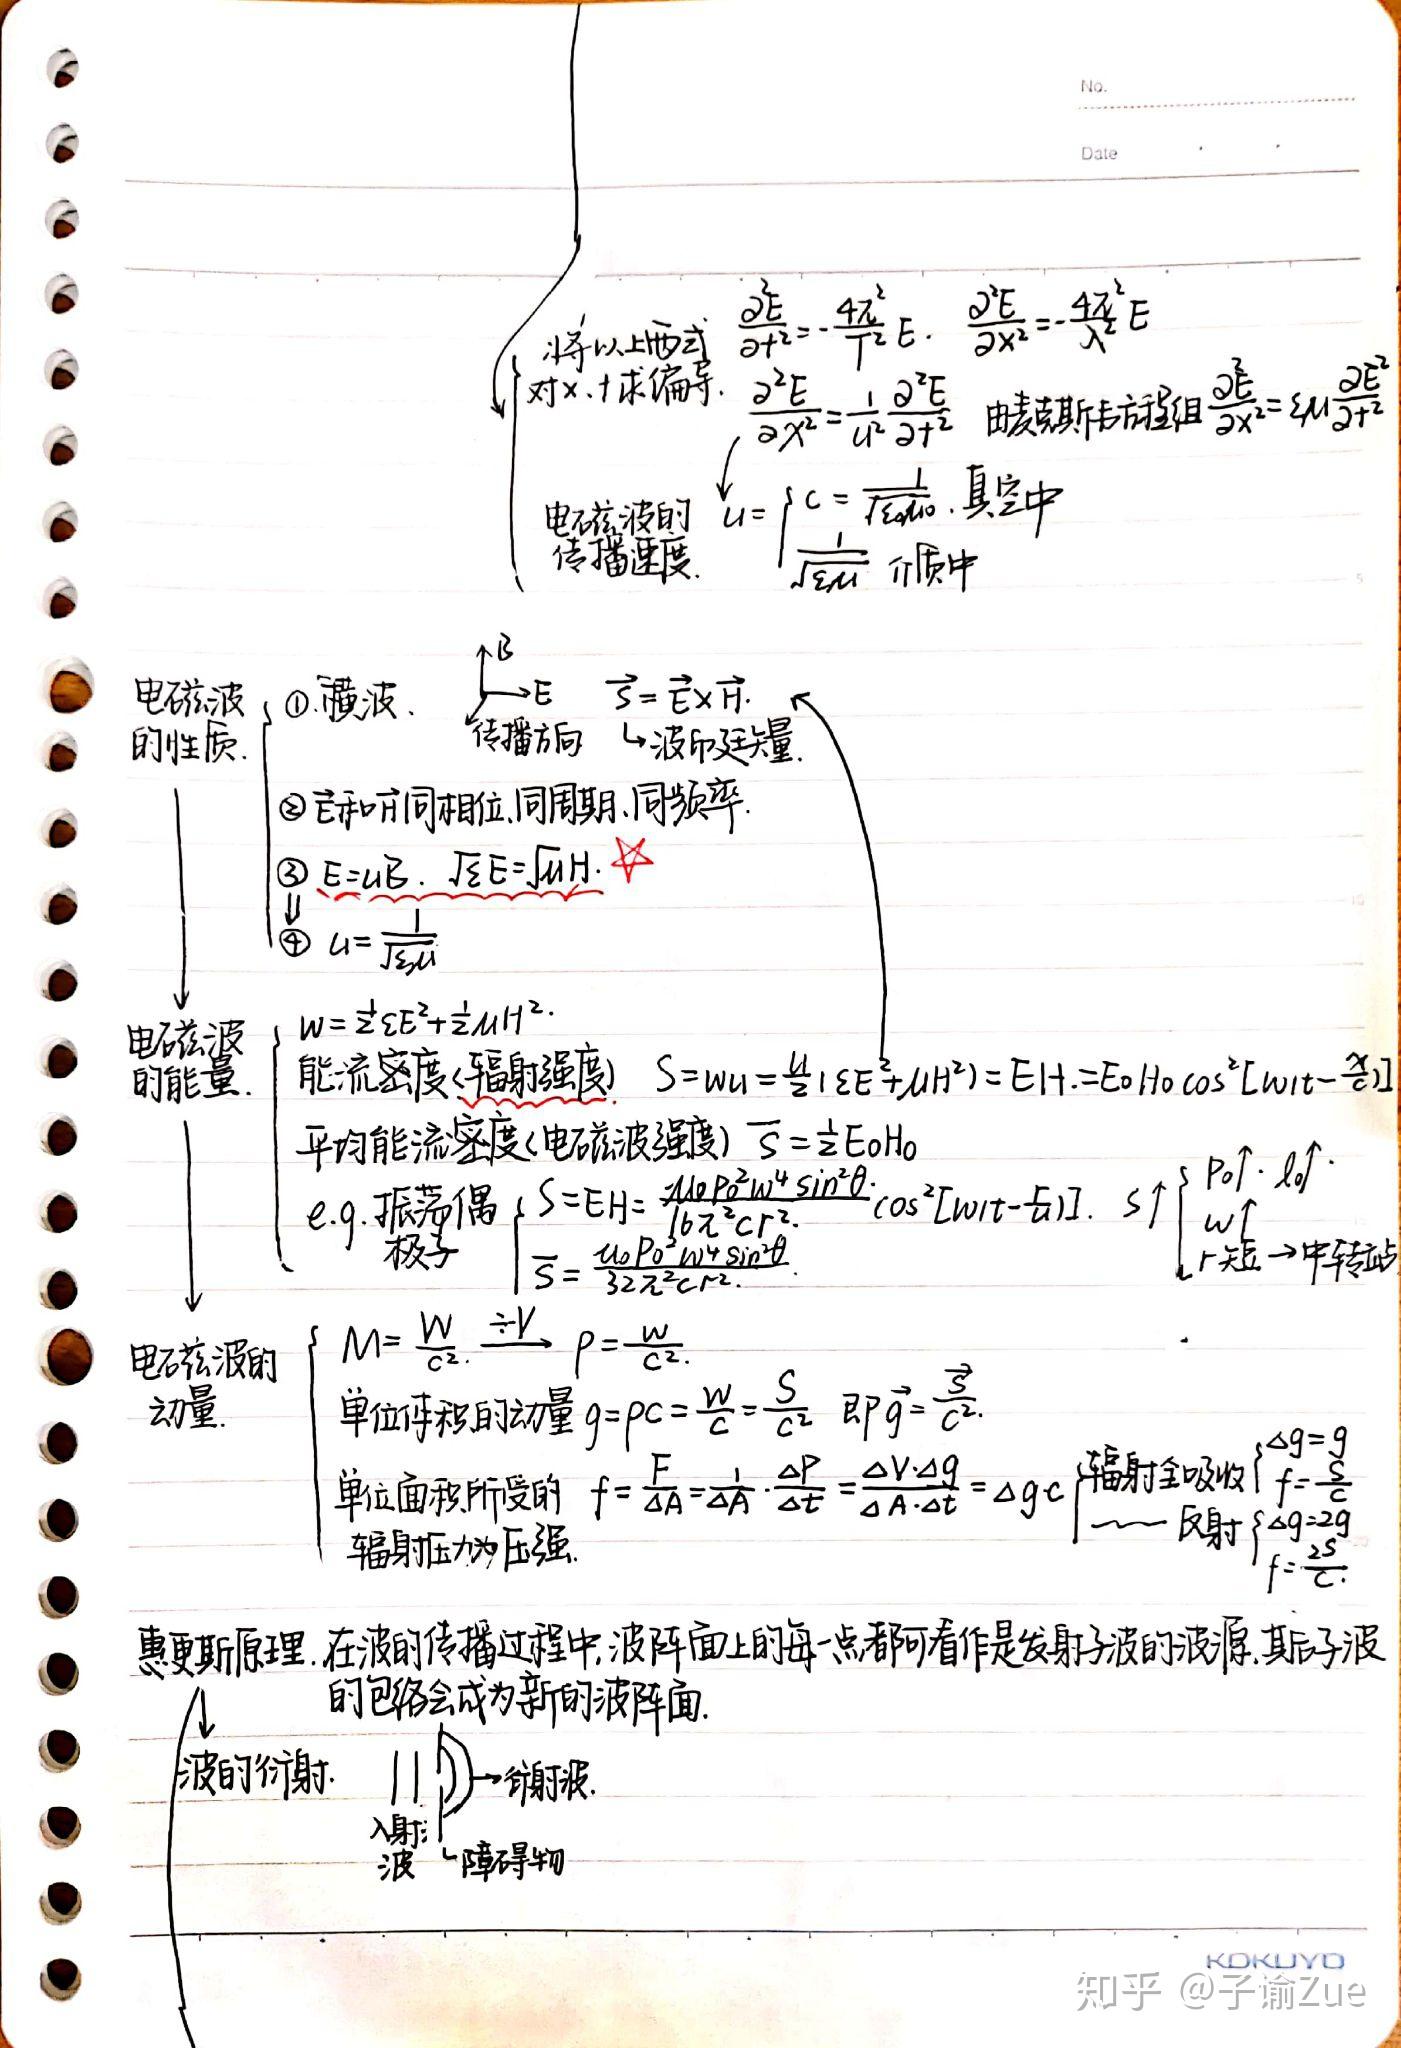 No.
Date
将以上两式 ∂²E/∂t²=-4π²/T² E. ∂²E/∂x²=-4π²/λ² E
对x、t求偏导. ∂²E/∂x²=1/u² ∂²E/∂t² 由麦克斯韦方程组 ∂²E/∂x²=εμ ∂E²/∂t²
电磁波的 u= { c=1/√ε₀μ₀ . 真空中
传播速度. 1/√εμ 介质中
B
电磁波 ①.横波. E S⃗=E⃗×H⃗.
的性质. 传播方向 ↳波印廷矢量.
②E⃗和H⃗同相位、同周期、同频率.
③ E=uB. √εE=√μH. ☆
⇓
④ u=1/√εμ
电磁波 w=½εE²+½μH².
的能量. 能流密度(辐射强度) S=wu=u/2(εE²+μH²)=EH.=E₀H₀cos²[w(t-x/c)]
平均能流密度(电磁波强度) S̄=½E₀H₀
e.g.振荡偶 S=EH=μ₀P₀²w⁴sin²θ/16π²cr². cos²[w(t-r/u)]. S↑ { P₀↑. l₀↑.
极子 S̄=μ₀P₀²w⁴sin²θ/32π²cr². w↑
r短→中转站
电磁波的 M=W/c². ÷V→ ρ=w/c².
动量. 单位体积的动量 g=ρc=w/c=S/c² 即g⃗=S⃗/c².
单位面积所受的 f=F/ΔA=1/ΔA·ΔP/Δt=ΔV·Δg/ΔA·Δt=Δg·c 辐射全吸收 { Δg=g f=S/c
辐射压力为压强. —— 反射 { Δg=2g f=2S/c.
惠更斯原理. 在波的传播过程中,波阵面上的每一点都可看作是发射子波的波源,其后子波
的包络会成为新的波阵面.
波的衍射. →衍射波.
入射
波 障碍物
KOKUYO
知乎 @子谕Zue